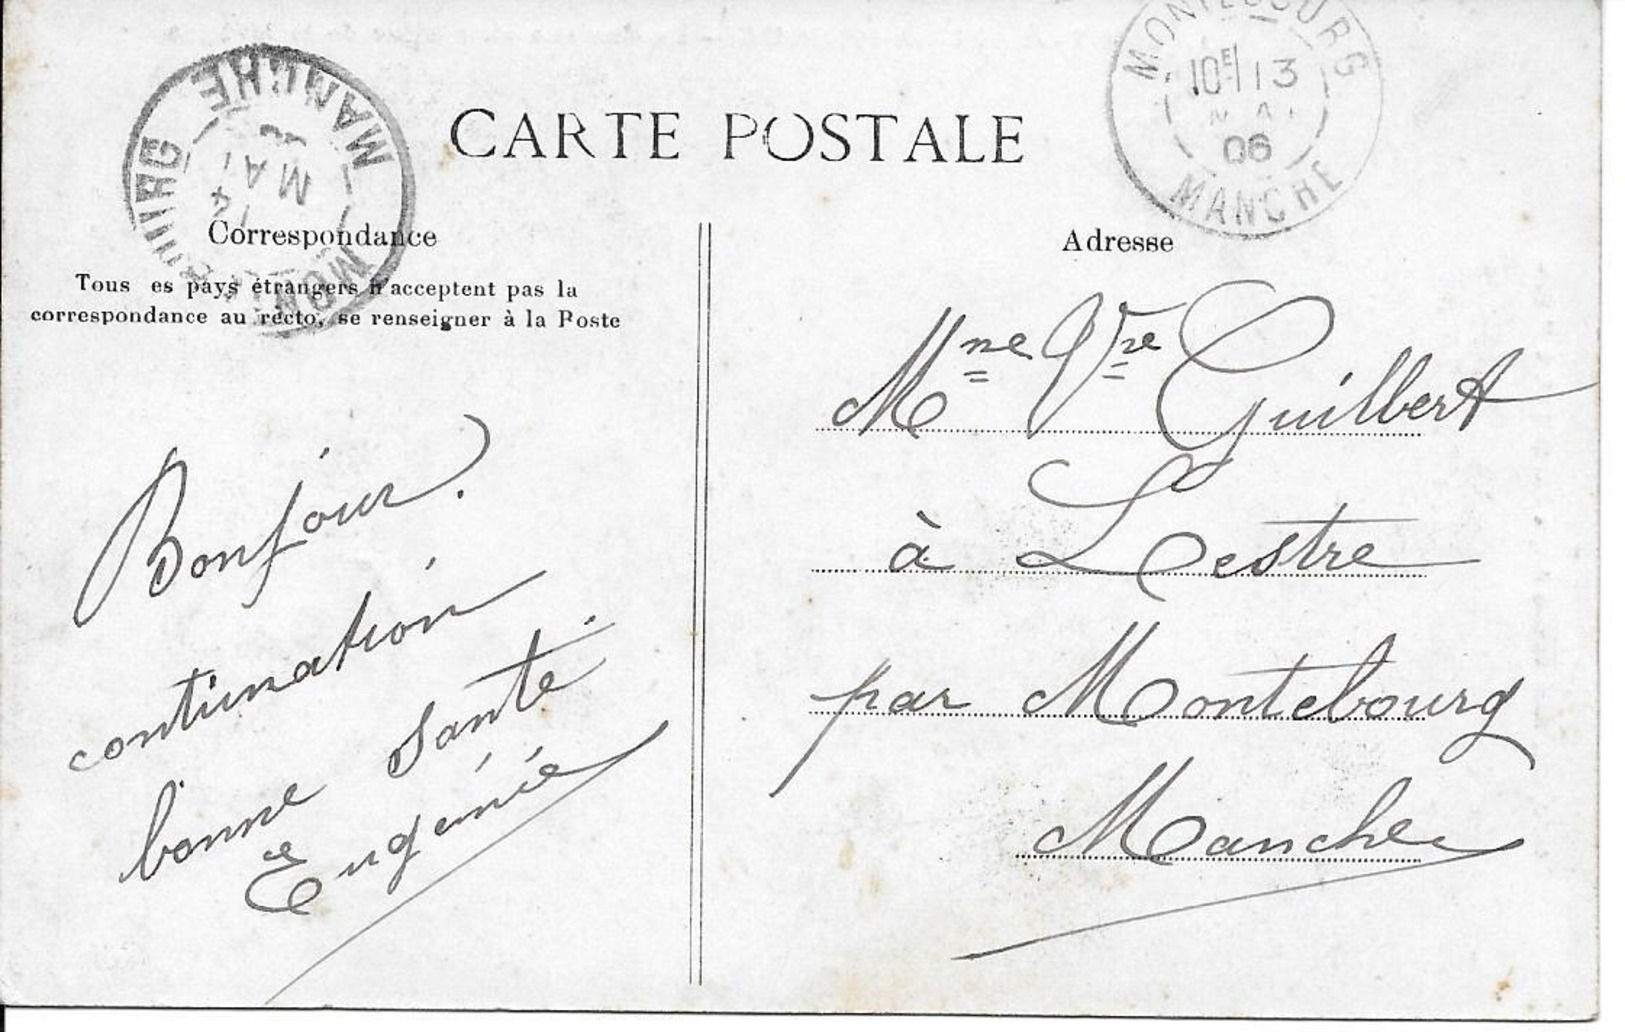 CARTE POSTALE
MANCHE
14
MAI
MONTEBOURG
10E 13
06
MANCHE
Correspondance
Tous es pays étrangers n'acceptent pas la
correspondance au recto, se renseigner à la Poste
Bonjour.
continuation
bonne santé.
Eugénie
Adresse
Mme Vve Guilbert
à Lestre
par Montebourg
Manche